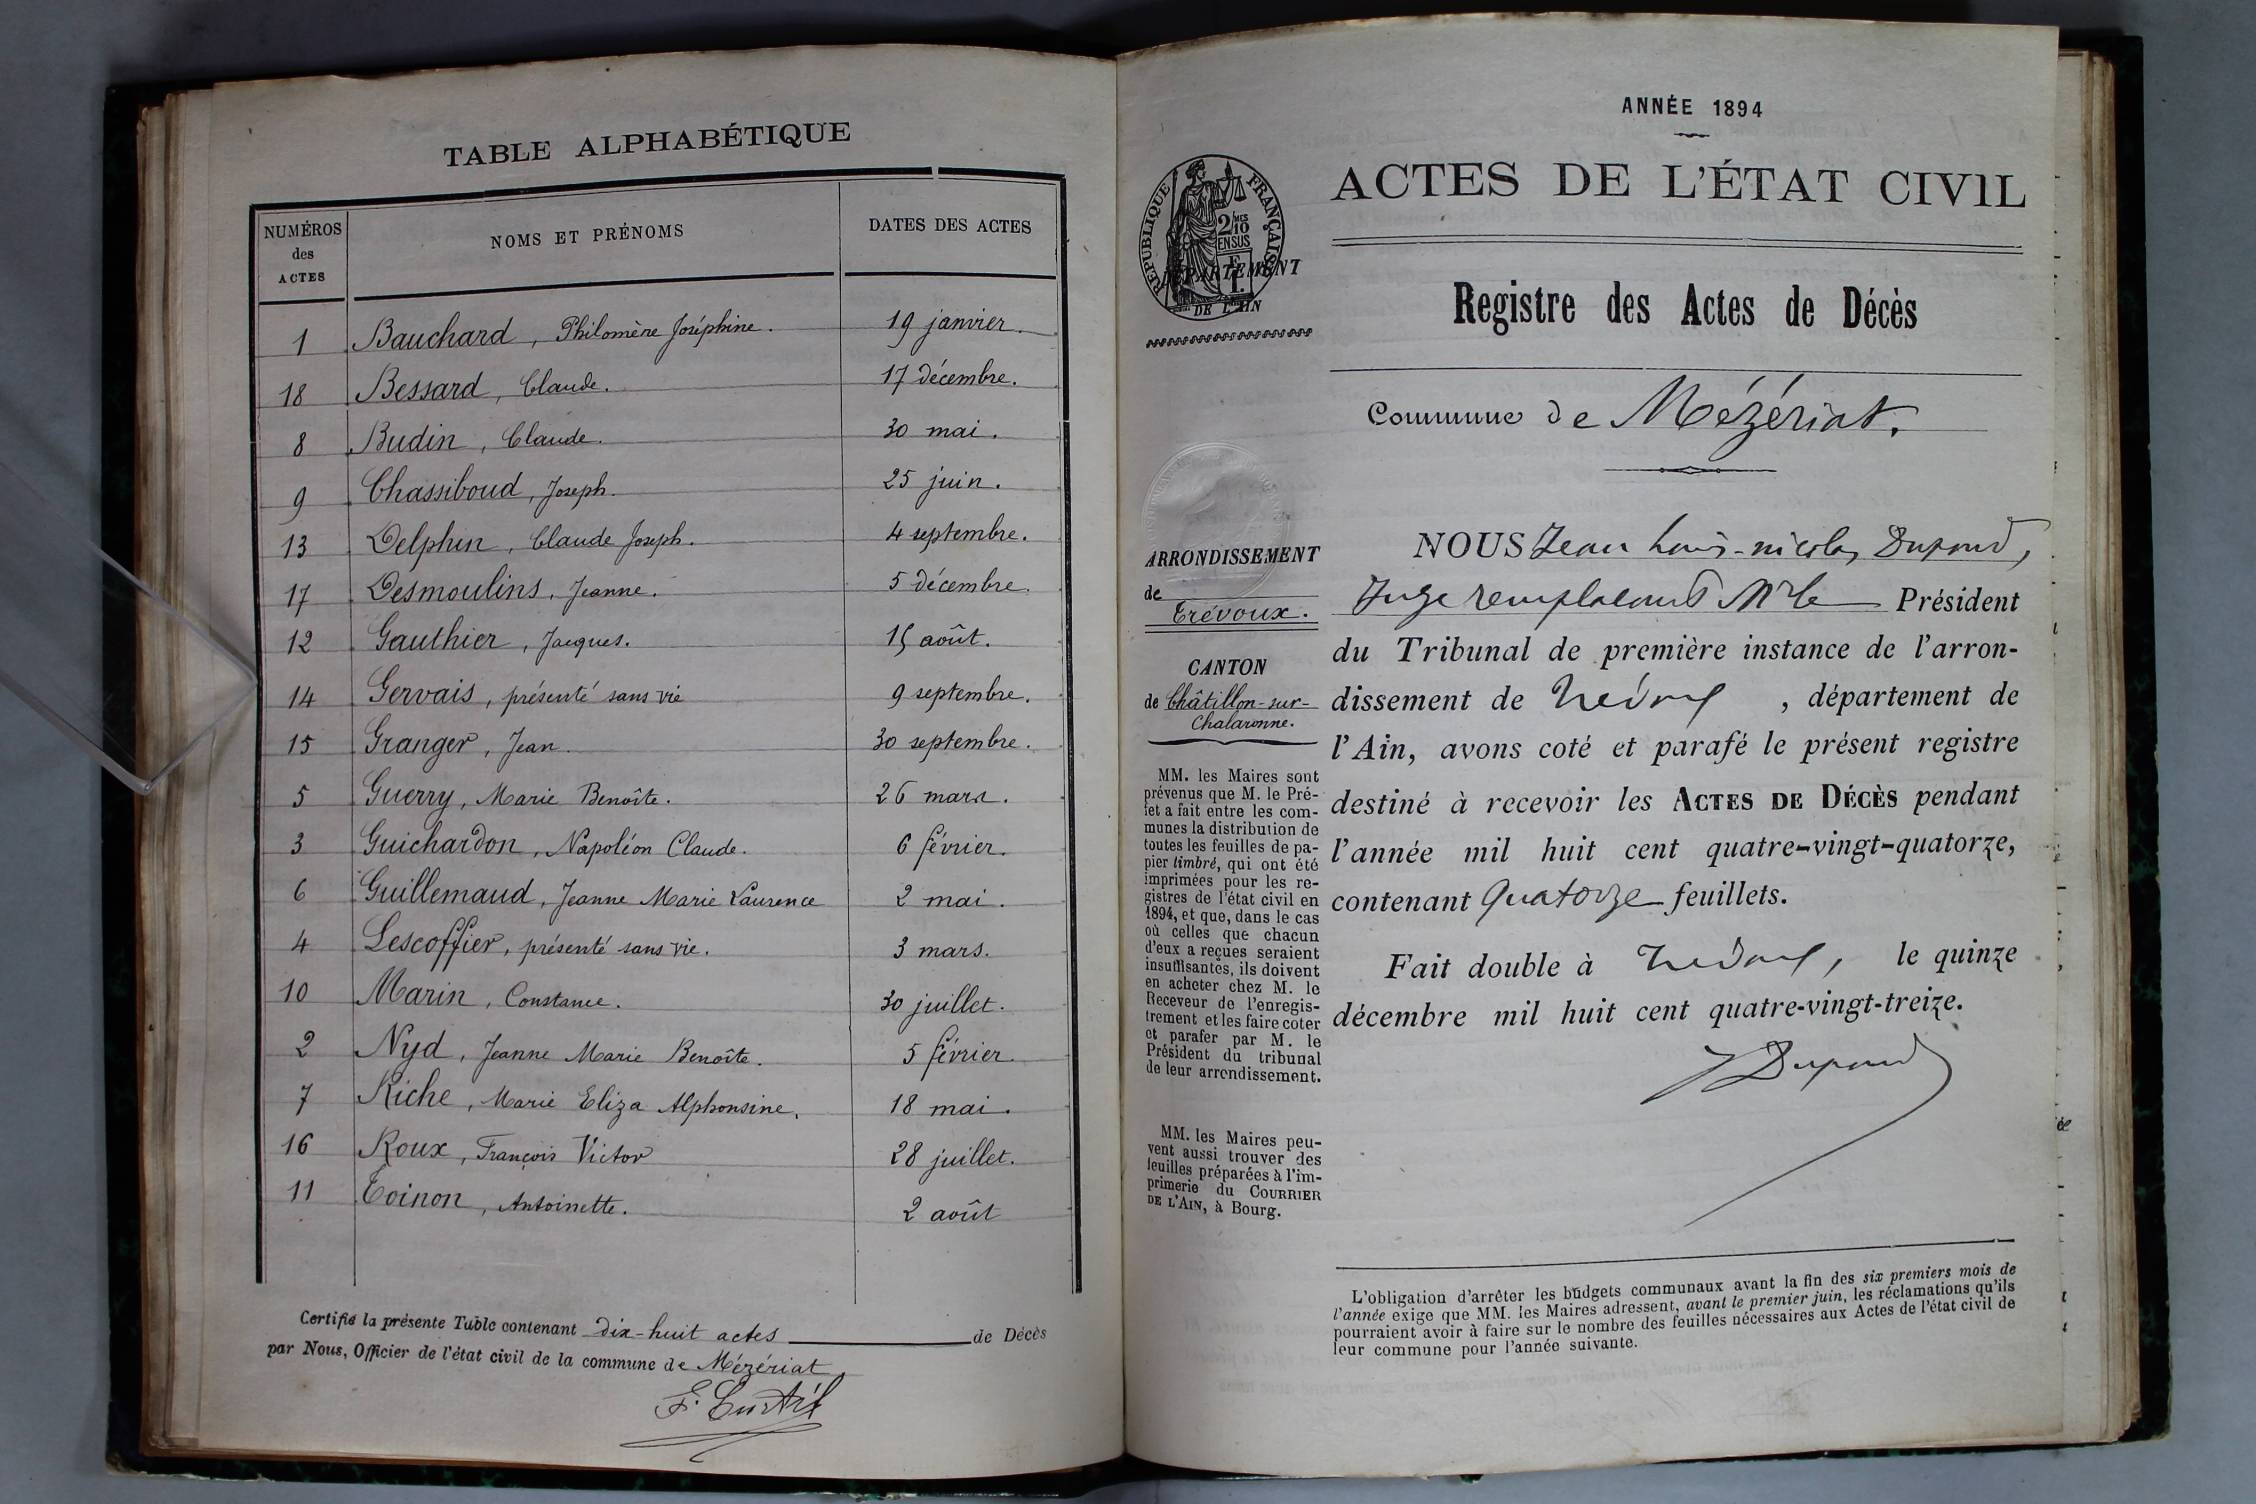 TABLE ALPHABÉTIQUE
NUMÉROS des ACTES NOMS ET PRÉNOMS DATES DES ACTES
1 Bauchard, Philomène Joséphine. 19 janvier.
18 Bessard, Claude. 17 décembre.
8 Budin, Claude. 30 mai.
9 Chassiboud, Joseph. 25 juin.
13 Delphin, Claude Joseph. 4 septembre.
17 Desmoulins, Jeanne. 5 décembre.
12 Gauthier, Jacques. 15 août.
14 Gervais, présenté sans vie 9 septembre.
15 Granger, Jean. 30 septembre.
5 Guerry, Marie Benoîte. 26 mars.
3 Guichardon, Napoléon Claude. 6 février.
6 Guillemaud, Jeanne Marie Laurence 2 mai.
4 Lescoffier, présenté sans vie. 3 mars.
10 Marin, Constance. 30 juillet.
2 Nyd, Jeanne Marie Benoîte. 5 février.
7 Riche, Marie Eliza Alphonsine. 18 mai.
16 Roux, François Victor 28 juillet.
11 Toinon, Antoinette. 2 août
Certifié la présente Table contenant dix-huit actes de Décès
par Nous, Officier de l'état civil de la commune de Mézériat
ANNÉE 1894
ACTES DE L'ÉTAT CIVIL
RÉPUBLIQUE FRANÇAISE
2/10 MES
EN SUS
DÉPARTEMENT
DE L'AIN
Registre des Actes de Décès
Commune de Mézériat.
ARRONDISSEMENT
de
Trévoux.
CANTON
de Châtillon-sur-
Chalaronne.
MM. les Maires sont
prévenus que M. le Pré-
fet a fait entre les com-
munes la distribution de
toutes les feuilles de pa-
pier timbré, qui ont été
imprimées pour les re-
gistres de l'état civil en
1894, et que, dans le cas
où celles que chacun
d'eux a reçues seraient
insuffisantes, ils doivent
en acheter chez M. le
Receveur de l'enregis-
trement et les faire coter
et parafer par M. le
Président du tribunal
de leur arrondissement.
MM. les Maires peu-
vent aussi trouver des
feuilles préparées à l'im-
primerie du COURRIER
DE L'AIN, à Bourg.
NOUS Jean Louis-nicolas Dupond,
Juge remplaçant Mr le Président
du Tribunal de première instance de l'arron-
dissement de Trévoux, département de
l'Ain, avons coté et parafé le présent registre
destiné à recevoir les ACTES DE DÉCÈS pendant
l'année mil huit cent quatre-vingt-quatorze,
contenant Quatorze feuillets.
Fait double à Trévoux, le quinze
décembre mil huit cent quatre-vingt-treize.
J Dupond
L'obligation d'arrêter les budgets communaux avant la fin des six premiers mois de
l'année exige que MM. les Maires adressent, avant le premier juin, les réclamations qu'ils
pourraient avoir à faire sur le nombre des feuilles nécessaires aux Actes de l'état civil de
leur commune pour l'année suivante.